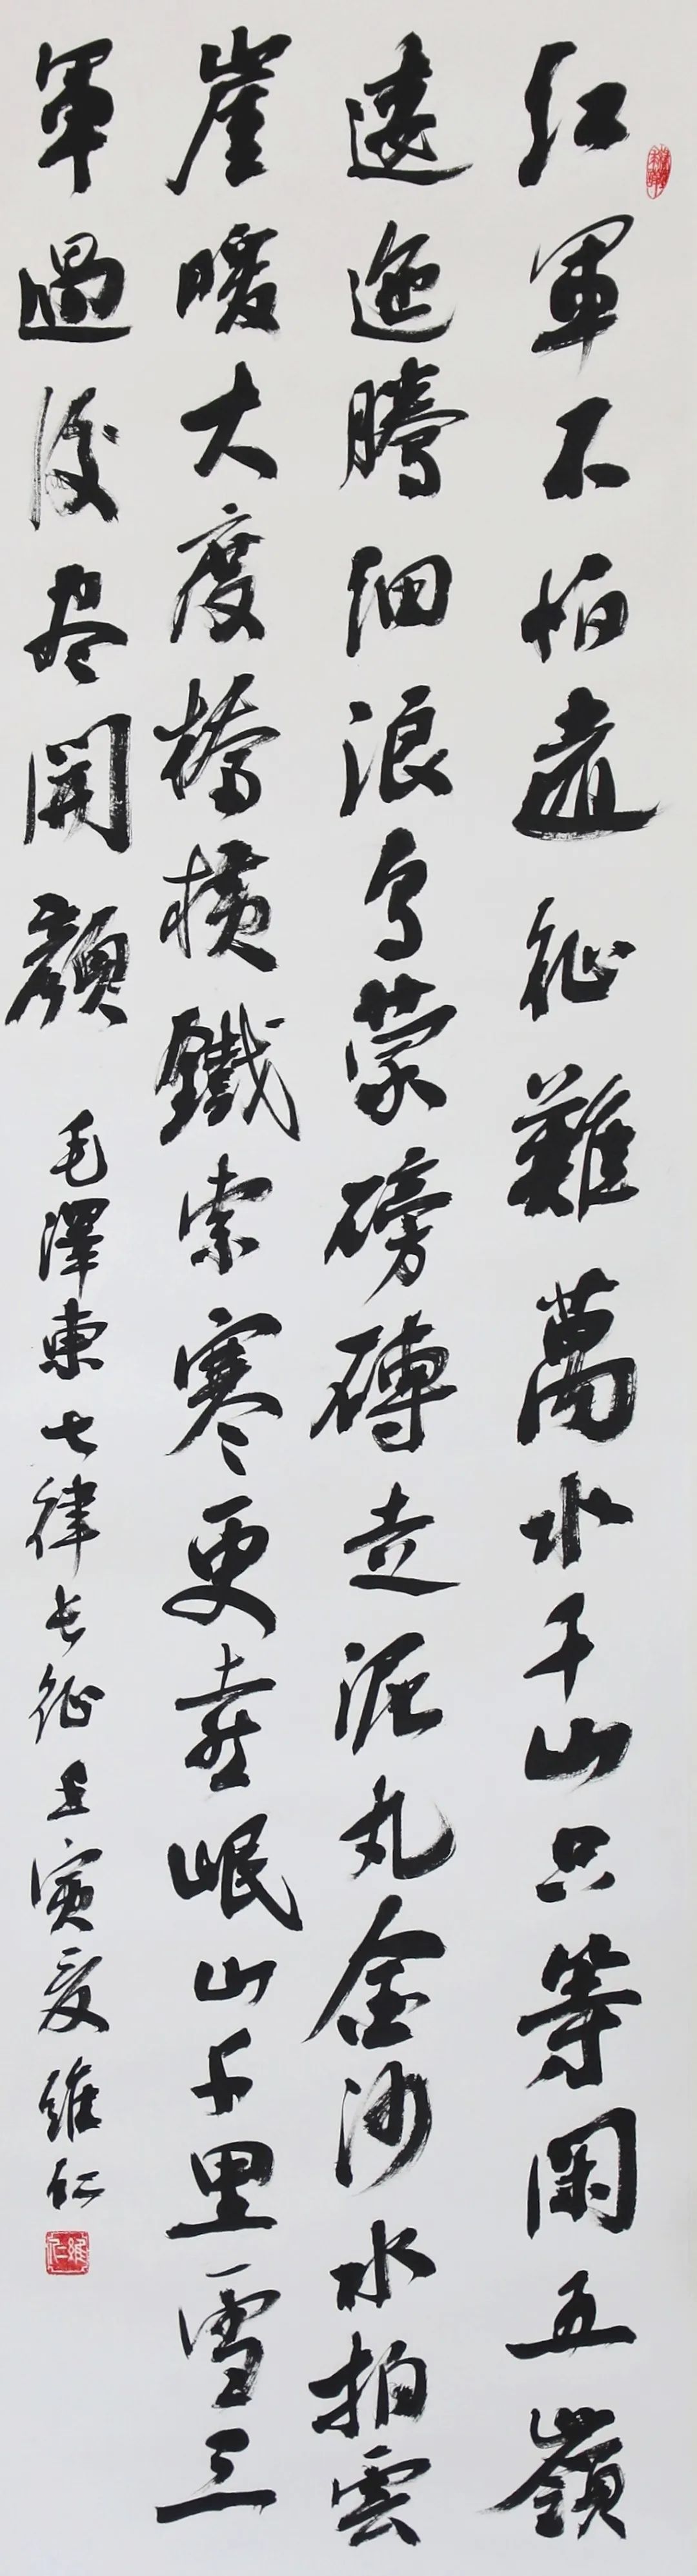 紅軍不怕遠征難萬水千山只等閑五嶺
逶迤騰細浪烏蒙磅礴走泥丸金沙水拍雲
崖暖大度橋橫鐵索寒更喜岷山千里雪三
軍過後尽開顏 毛澤東七律長征壬寅夏 維仁
維仁